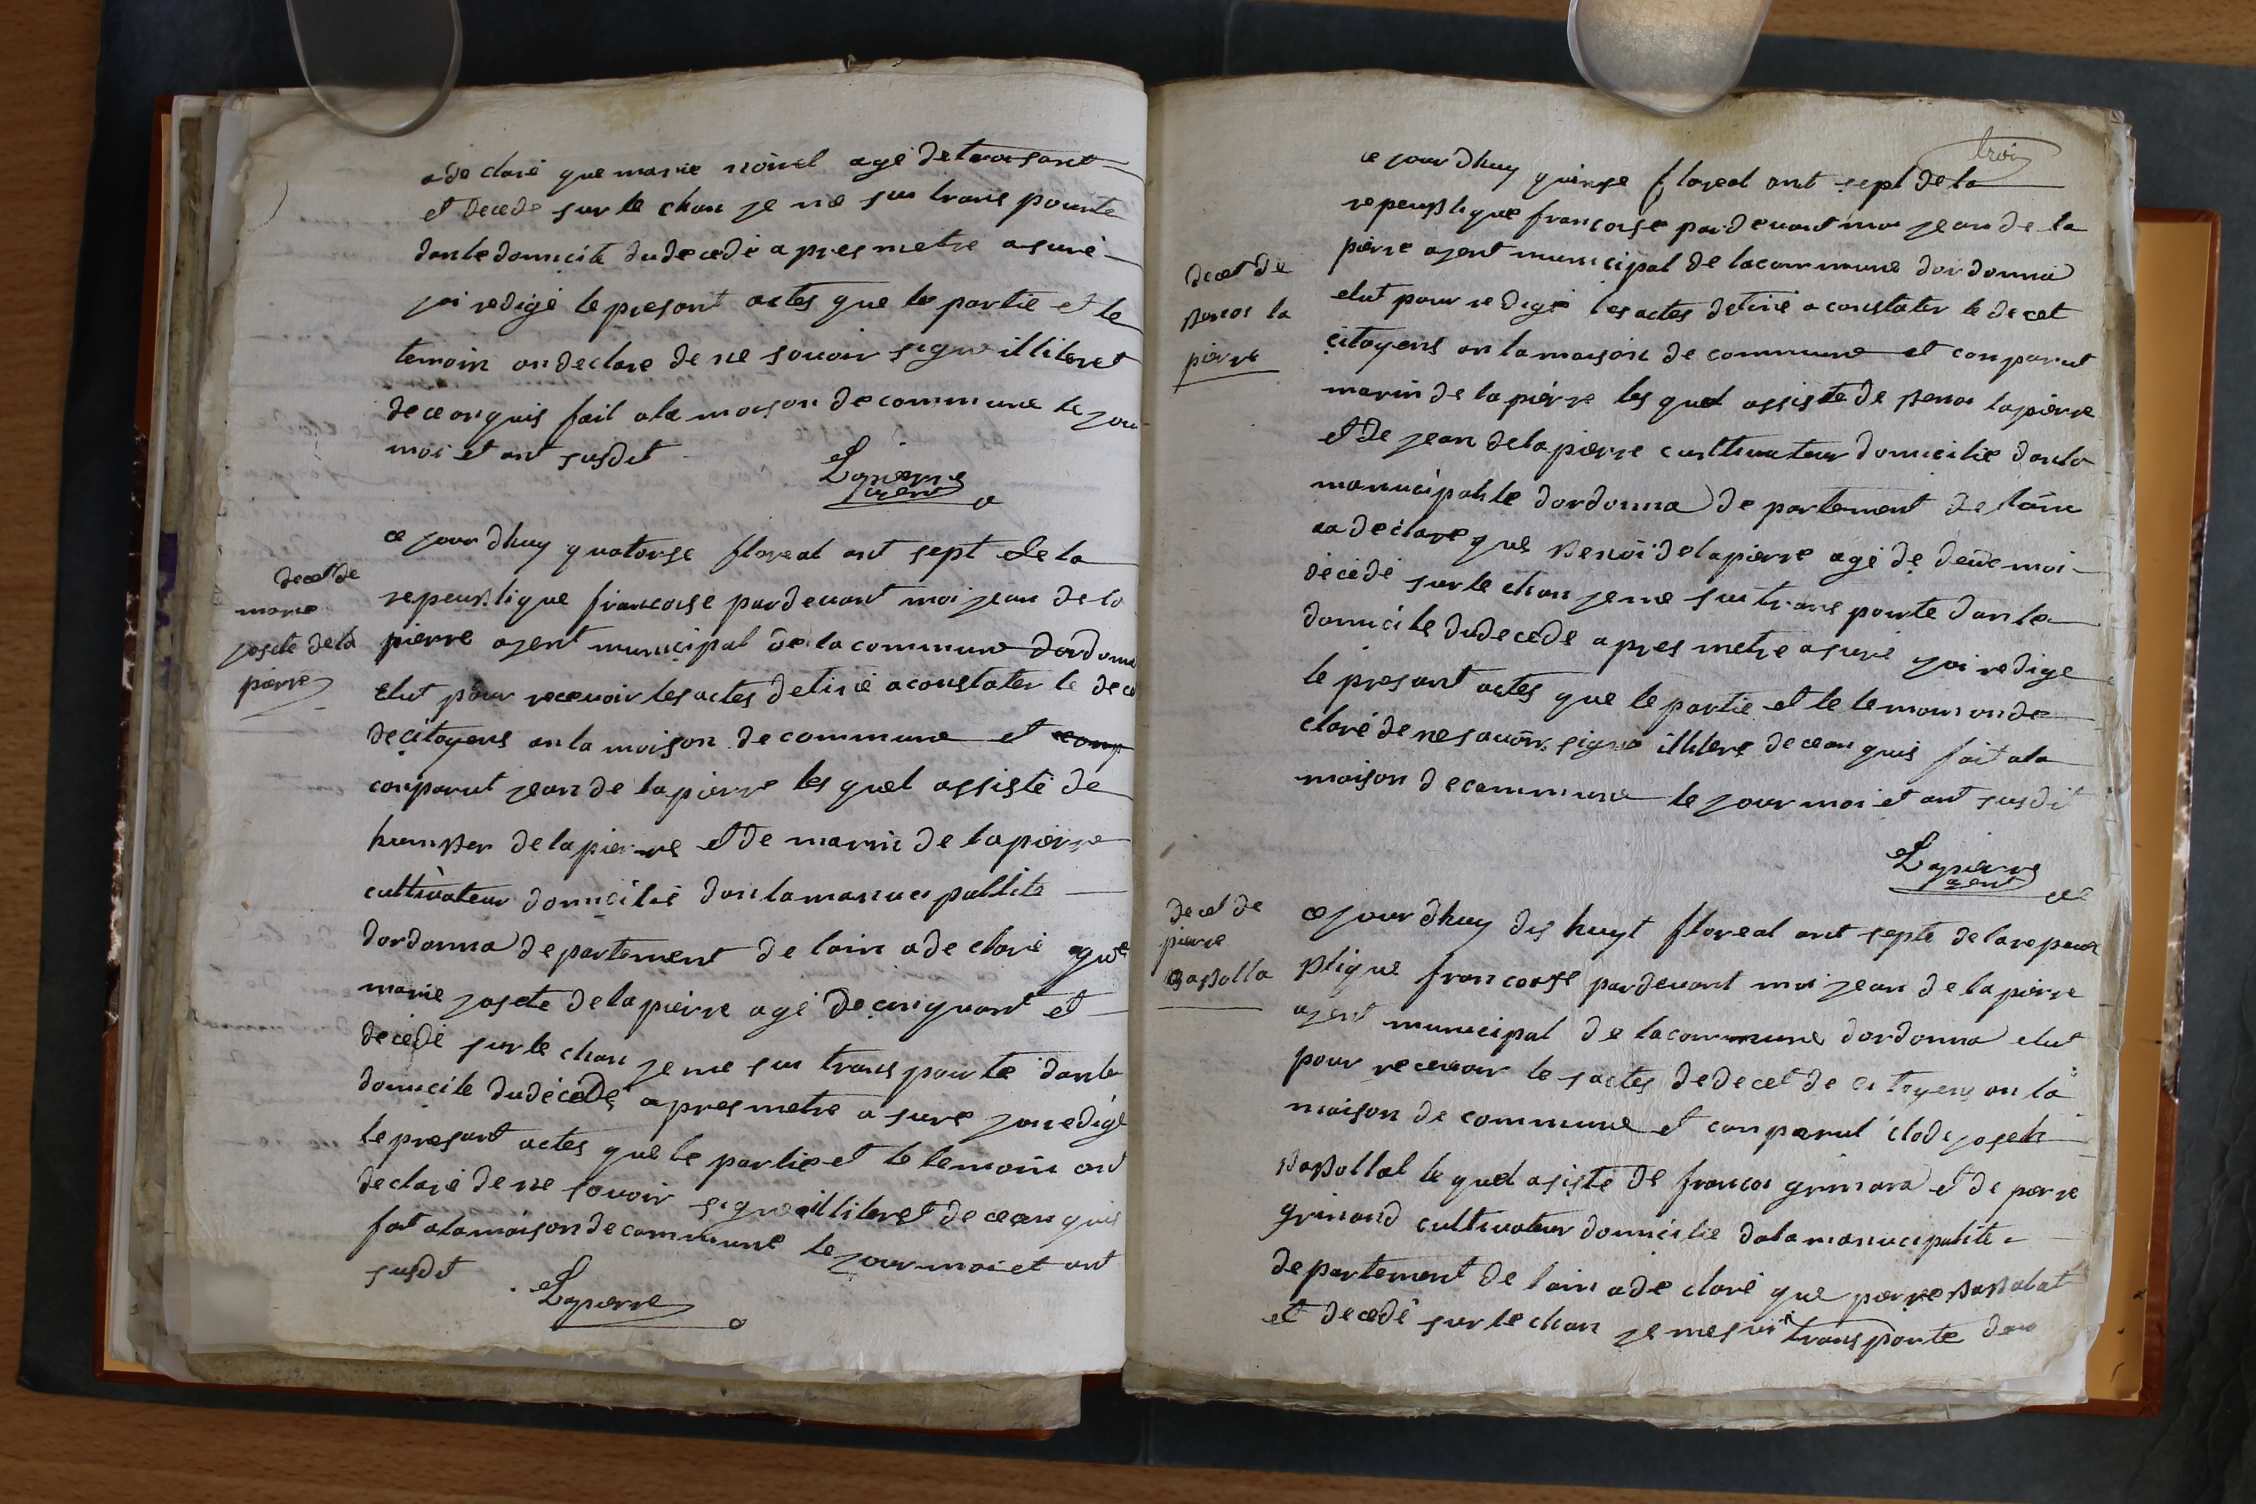 a de claré que marie noirel agé de trois ant
et decede sur le chan je me sui trans pourte
dan le domicile du decedé a pres metre asuré
jai redigé le presant actes que le partie et le
temoin on declare de ne savoir signe illiteret
de ce anquis fait a la maison de commune le jour
moi et ant susdit
Lapierre
agent
decet de
marie
josete dela
pierre
ce jour dhuy quatorse floreal ant sept de la
repeublique francoise pardevant moi jean de la
pierre agent municipal de la commune dordonna
elut pour recevoir les actes detiné a constater le decet
de citoyens an la maison de commune et comp
conparut jean de la pierre les quel assisté de
humber de la pierre et de marin de la pierre
cultivateur domicilié dan la manucipallite
dordonna departement de lain a de claré que
marie josete de la pierre agé de cinquant et
décédé sur le chan je me sui trans pourte dan le
domicile du décédé a pres metre a sure jai redigé
le presant actes que le partie et le temoin ont
declaré de ne savoir signe illiteret de ce an quis
fait a la maison de commune le jour moi et ant
susdit
Lapierre
trois
decet de
benoi la
pierre
ce jour dhuy quinse floreal ant sept de la
repeublique francoise pardevant moi jean de la
pierre agent municipal de la commune dordonna
elut pour redigé les actes detiné a constater le decet
citoyens an la maison de commune et conparut
marin de la pierre les quel assisté de benoi lapierre
et de jean de la pierre cultivateur domicilié dan la
manucipalite dordonna departement de lain
a declare que benoi de la pierre agé de deux moi
décédé sur le chan je me sui trans pourte dan le
domicile du decede a pres metre a suré jai redige
le presant actes que le partie et le temoin on de
claré de ne savoir signe illitere de ce an quis fait a la
maison de commune le jour moi et ant susdit
Lapierre
agent
decet de
pierre
babolla
ce jour dhuy dis huyt floreal ant septe de la repeu
blique francoise pardevant moi jean de la pierre
agent municipal de la commune dordonna elut
pour recevoir les actes de decet de citoyens an la
maison de commune et conparut clode joseh
babollat le quel asisté de francoi grinand et de pierre
grinand cultivateur domicilie da la manucipalite
departement de lain a de claré que pierre babolat
et decedé sur le chan je me sui transporte dan